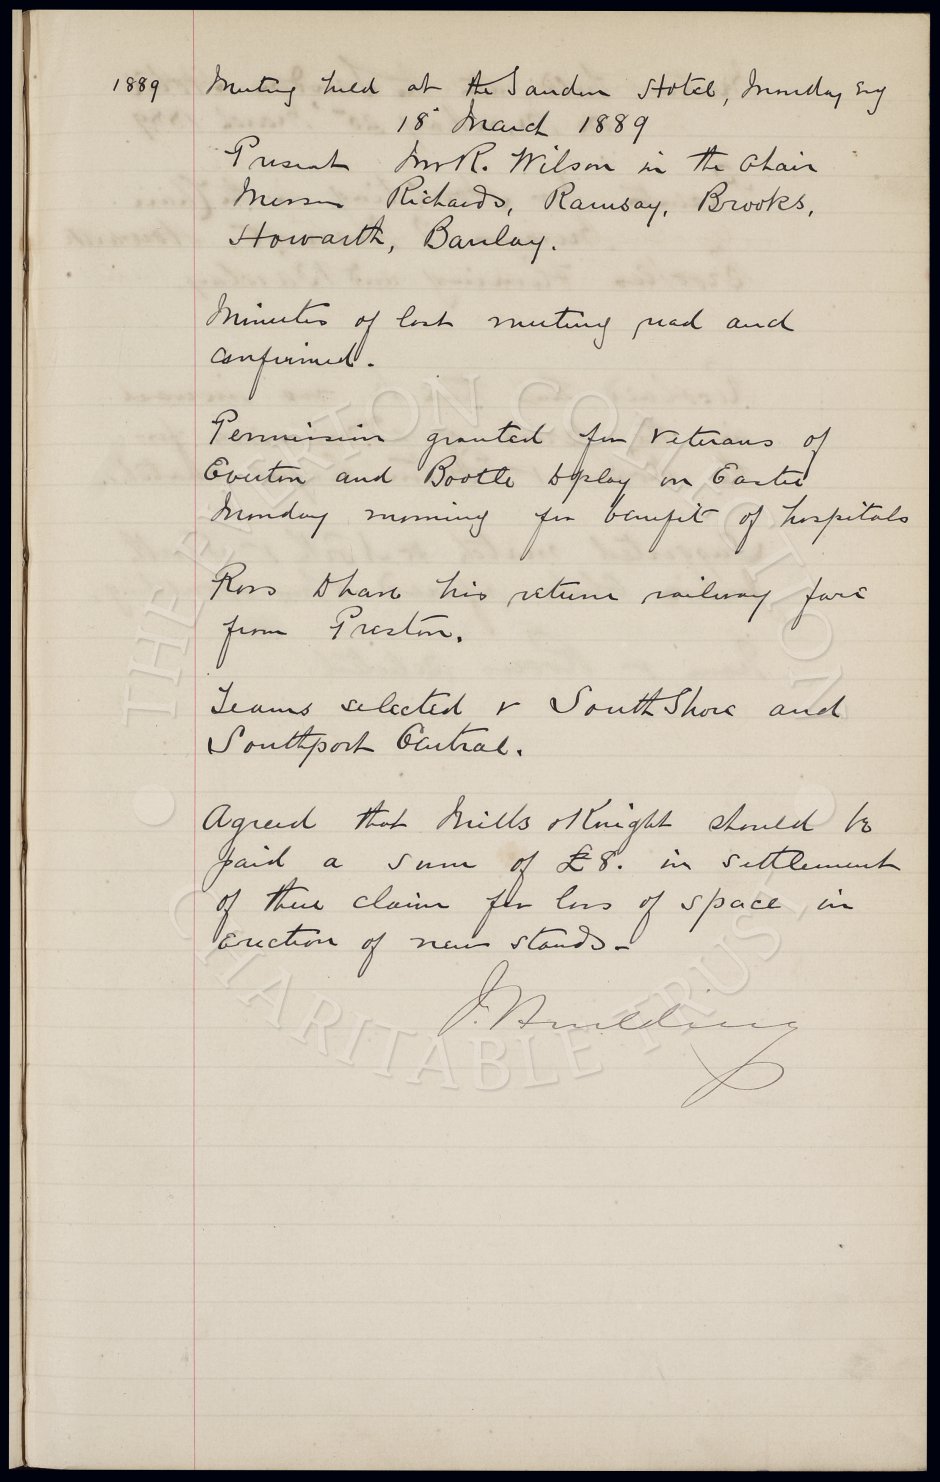 1889 Meeting held at the Sandon Hotel, Monday Evg
18" March 1889
Present Mr R. Wilson in the Chair
Messrs Richards, Ramsay, Brooks,
Howarth, Barclay.
Minutes of last meeting read and
confirmed.
Permission granted for veterans of
Everton and Bootle to play on Easter
Monday morning for benefit of hospitals
Ross to have his return railway fare
from Preston.
Teams selected v South Shore and
Southport Central.
Agreed that Mills & Knight should be
paid a sum of £8. in settlement
of their claim for loss of space in
erection of new stands -
THE EVERTON COLLECTION
CHARITABLE TRUST